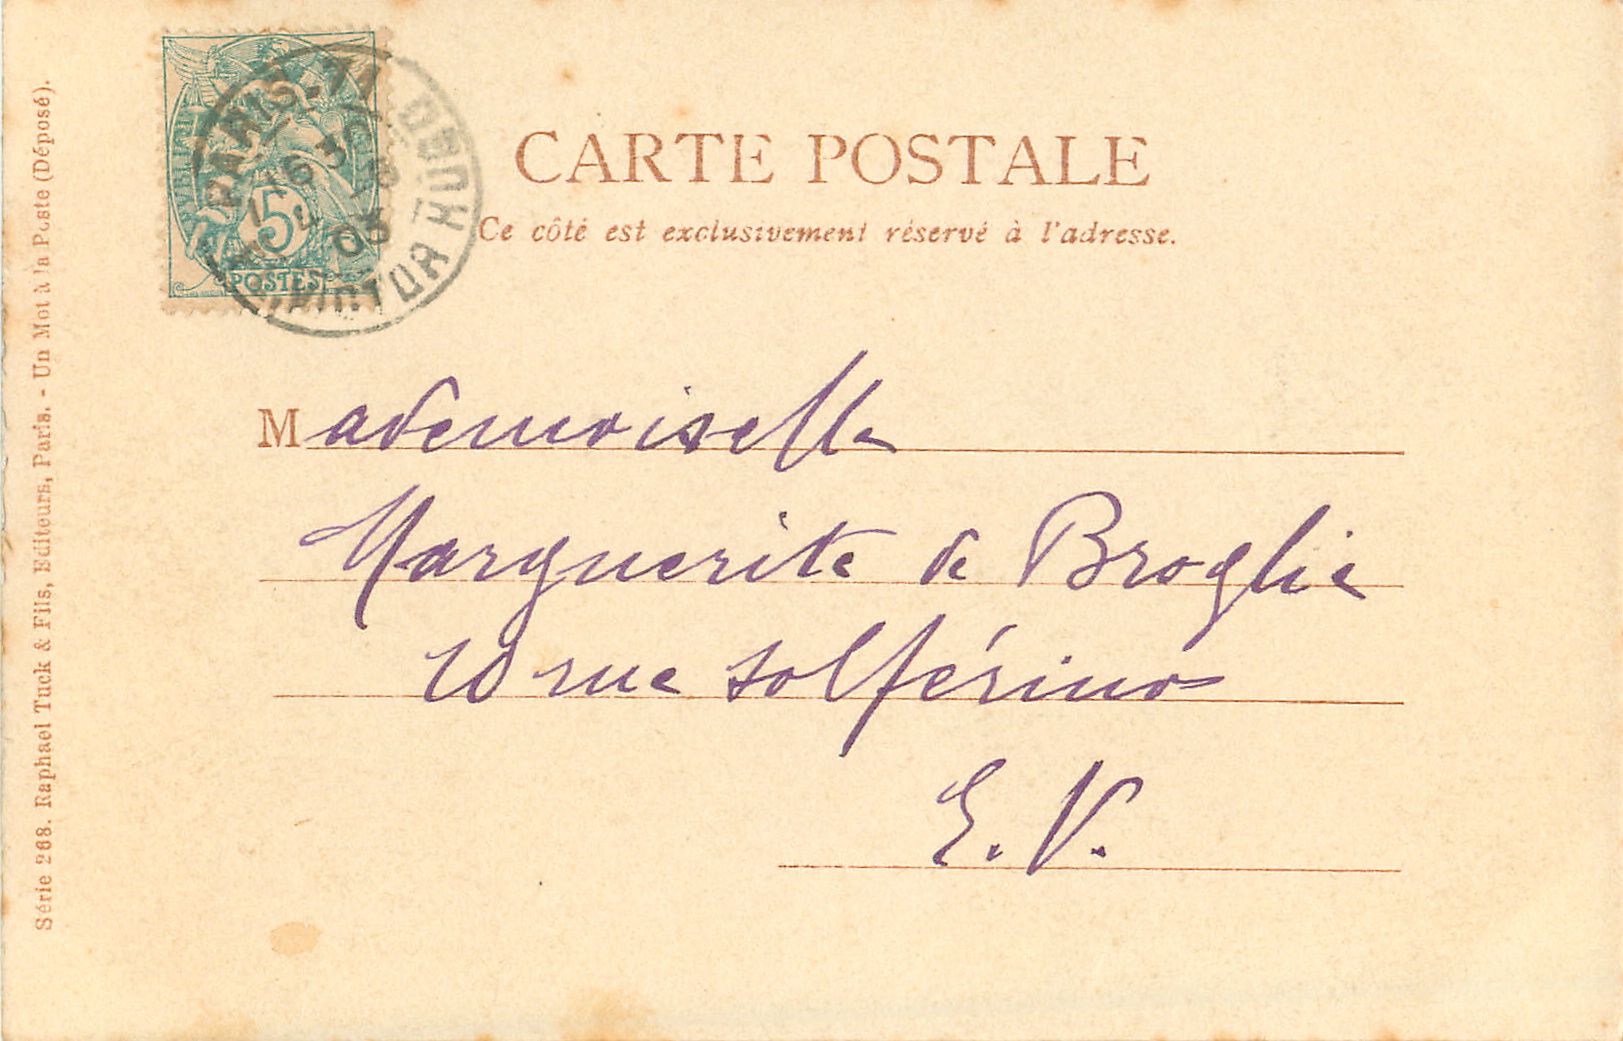 CARTE POSTALE
Ce côté est exclusivement réservé à l'adresse.
Mademoiselle
Marguerite de Broglie
10 rue Solférino
E. V.
Série 268. Raphael Tuck & Fils, Editeurs, Paris. - Un Mot à la Poste (Déposé).
5
POSTES
PARIS-71
VICTOR HUGO
16
03